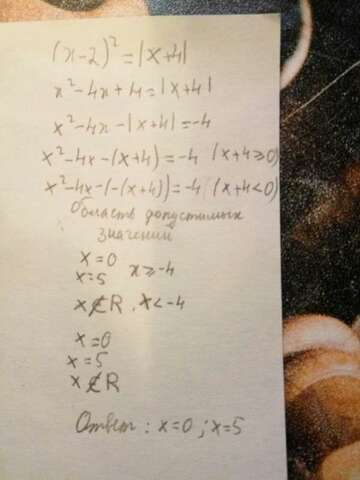 (x-2)² = |x+4|
x²-4x+4=|x+4|
x²-4x-|x+4|=-4
x²-4x-(x+4)=-4 (x+4≥0)
x²-4x-(-(x+4))=-4 (x+4<0)
Область допустимых
значений
x=0
x=5 x≥-4
x∉R, x<-4
x=0
x=5
x∉R
Ответ: x=0; x=5